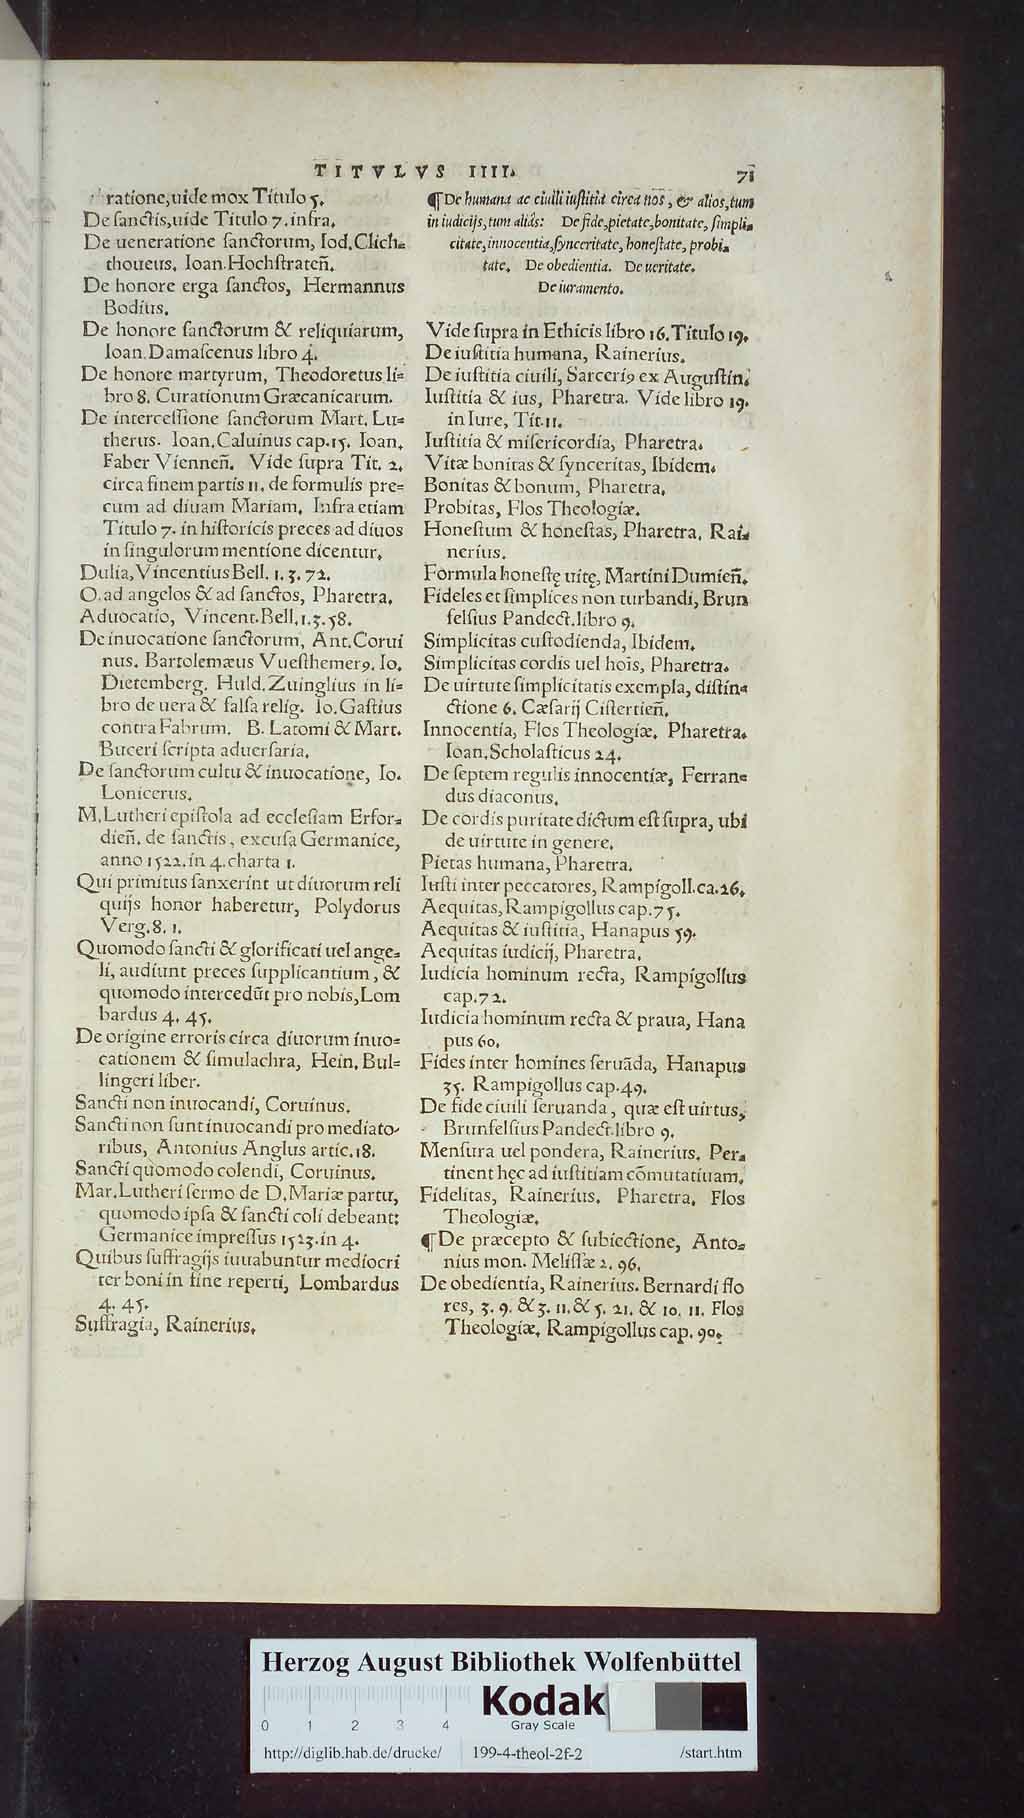 TITVLVS IIII.
71
ratione, uide mox Titulo 5.
De sanctis, uide Titulo 7. infra.
De ueneratione sanctorum, Iod. Clich=
thoueus. Ioan. Hochstrateñ.
De honore erga sanctos, Hermannus
Bodius.
De honore sanctorum & reliquiarum,
Ioan. Damascenus libro 4.
De honore martyrum, Theodoretus li=
bro 8. Curationum Græcanicarum.
De intercessione sanctorum Mart. Lu=
therus. Ioan. Caluinus cap. 15. Ioan.
Faber Vienneñ. Vide supra Tit. 2.
circa finem partis 11. de formulis pre=
cum ad diuam Mariam. Infra etiam
Titulo 7. in historicis preces ad diuos
in singulorum mentione dicentur.
Dulia, Vincentius Bell. 1. 3. 72.
O. ad angelos & ad sanctos, Pharetra.
Aduocatio, Vincent. Bell. 1. 3. 58.
De inuocatione sanctorum, Ant. Corui
nus. Bartolemæus Vuesthemerꝯ. Io.
Dietemberg. Huld. Zuinglius in li=
bro de uera & falsa relig. Io. Gastius
contra Fabrum. B. Latomi & Mart.
Buceri scripta aduersaria.
De sanctorum cultu & inuocatione, Io.
Lonicerus.
M. Lutheri epistola ad ecclesiam Erfor=
dieñ. de sanctis, excusa Germanice,
anno 1522. in 4. charta 1.
Qui primitus sanxerint ut diuorum reli
quijs honor haberetur, Polydorus
Verg. 8. 1.
Quomodo sancti & glorificati uel ange=
li, audiunt preces supplicantium, &
quomodo intercedūt pro nobis, Lom
bardus 4. 45.
De origine erroris circa diuorum inuo=
cationem & simulachra, Hein. Bul=
lingeri liber.
Sancti non inuocandi, Coruinus.
Sancti non sunt inuocandi pro mediato=
ribus, Antonius Anglus artic. 18.
Sancti quomodo colendi, Coruinus.
Mar. Lutheri sermo de D. Mariæ partu,
quomodo ipsa & sancti coli debeant:
Germanice impressus 1523. in 4.
Quibus suffragijs iuuabuntur mediocri
ter boni in fine reperti, Lombardus
4. 45.
Suffragia, Rainerius.
¶ De humana ac ciuili iustitia circa nos, & alios, tum
in iudicijs, tum aliâs: De fide, pietate, bonitate, simpli=
citate, innocentia, synceritate, honestate, probi=
tate. De obedientia. De ueritate.
De iuramento.
Vide supra in Ethicis libro 16. Titulo 19.
De iustitia humana, Rainerius.
De iustitia ciuili, Sarceriꝯ ex Augustin.
Iustitia & ius, Pharetra. Vide libro 19.
in Iure, Tit. 11.
Iustitia & misericordia, Pharetra.
Vitæ bonitas & synceritas, Ibidem.
Bonitas & bonum, Pharetra.
Probitas, Flos Theologiæ.
Honestum & honestas, Pharetra. Rai=
nerius.
Formula honestę uitę, Martini Dumieñ.
Fideles et simplices non turbandi, Brun
felsius Pandect. libro 9.
Simplicitas custodienda, Ibidem.
Simplicitas cordis uel hoīs, Pharetra.
De uirtute simplicitatis exempla, distin=
ctione 6. Cæsarij Cistertieñ.
Innocentia, Flos Theologiæ. Pharetra.
Ioan. Scholasticus 24.
De septem regulis innocentiæ, Ferran=
dus diaconus.
De cordis puritate dictum est supra, ubi
de uirtute in genere.
Pietas humana, Pharetra.
Iusti inter peccatores, Rampigoll. ca. 26.
Aequitas, Rampigollus cap. 75.
Aequitas & iustitia, Hanapus 59.
Aequitas iudicij, Pharetra.
Iudicia hominum recta, Rampigollus
cap. 72.
Iudicia hominum recta & praua, Hana
pus 60.
Fides inter homines seruāda, Hanapus
35. Rampigollus cap. 49.
De fide ciuili seruanda, quæ est uirtus,
Brunfelsius Pandect. libro 9.
Mensura uel pondera, Rainerius. Per=
tinent hęc ad iustitiam cōmutatiuam.
Fidelitas, Rainerius. Pharetra. Flos
Theologiæ.
¶ De præcepto & subiectione, Anto=
nius mon. Melissæ 2. 96.
De obedientia, Rainerius. Bernardi flo
res, 3. 9. & 3. 11. & 5. 21. & 10. 11. Flos
Theologiæ. Rampigollus cap. 90.
Herzog August Bibliothek Wolfenbüttel
Kodak
Gray Scale
0 1 2 3 4
http://diglib.hab.de/drucke/ 199-4-theol-2f-2 /start.htm